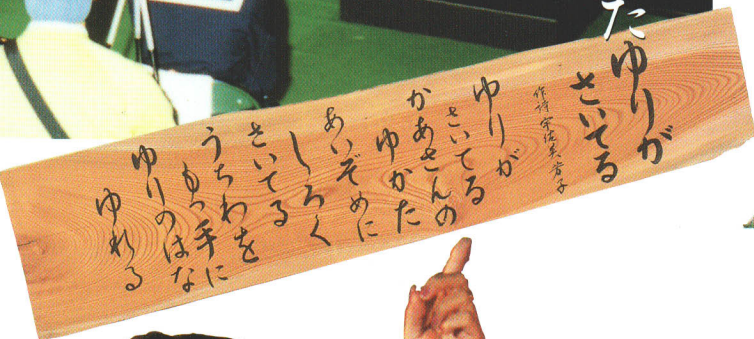 た
ゆりが
さいてる
作詩 宇佐美
ゆりが
さいてる
かあさんの
ゆかた
あいぞめに
しろく
さいてる
うちわを
もつ手に
ゆりのはな
ゆれる